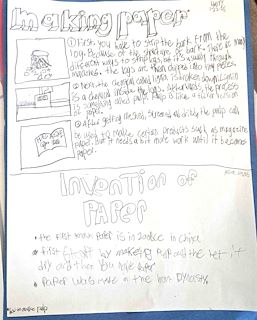 making paper
① First, you have to strip the bark from the
logs. Because of the structure of bark, there is many
different ways to strip logs, but it's usually through
machines. the logs are then chipped into tiny pieces.
② Next, the chemical called lignin is broken down. Lignin
is a chemical inside the logs. Afterwards, the process
is something called pulp. Pulp is like a thicker version
of paper.
③ After getting meshed, screened and dried, the pulp can
be used to make certain products such as magazine
paper. but it needs a bit more work until it becomes
paper.
Invention of
PAPER
• the first known paper is in 200bce in china
• first by making pulp and the let it
dry and then you have paper
• paper was made in the han Dynasty
pulp